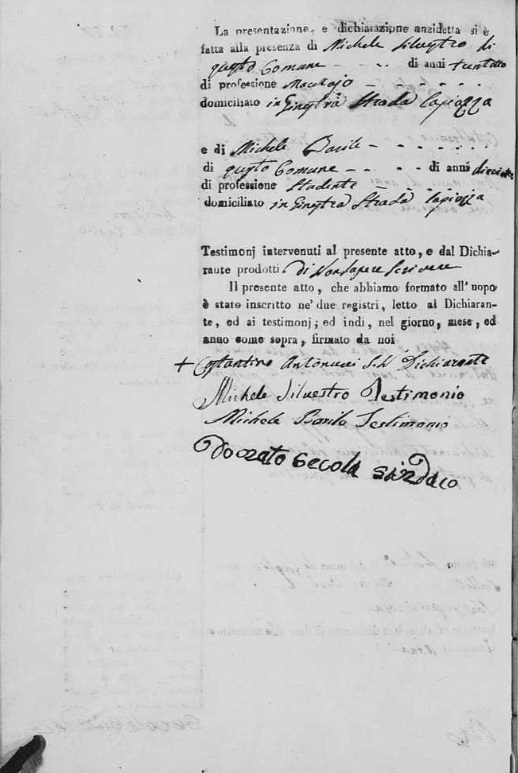 La presentazione, e dichiarazione anzidetta si è
fatta alla presenza di Michele Silvestro di
questo Comune - - - di anni
di professione
domiciliato in Ginestra Strada Lapiazza
e di Michele Barile - - - - - -
di questo Comune - - - - di anni
di professione Studente - - - - - -
domiciliato in Ginestra Strada Lapiazza
Testimonj intervenuti al presente atto, e dal Dichia-
rante prodotti di Non sapere Scrivere
Il presente atto, che abbiamo formato all'uopo
è stato inscritto ne' due registri, letto al Dichiaran-
te, ed ai testimonj; ed indi, nel giorno, mese, ed
anno come sopra, firmato da noi
+ Costantino Antonucci Dichiarante
Michele Silvestro Testimonio
Michele Barile Testimonio
Donato Secola Sindaco